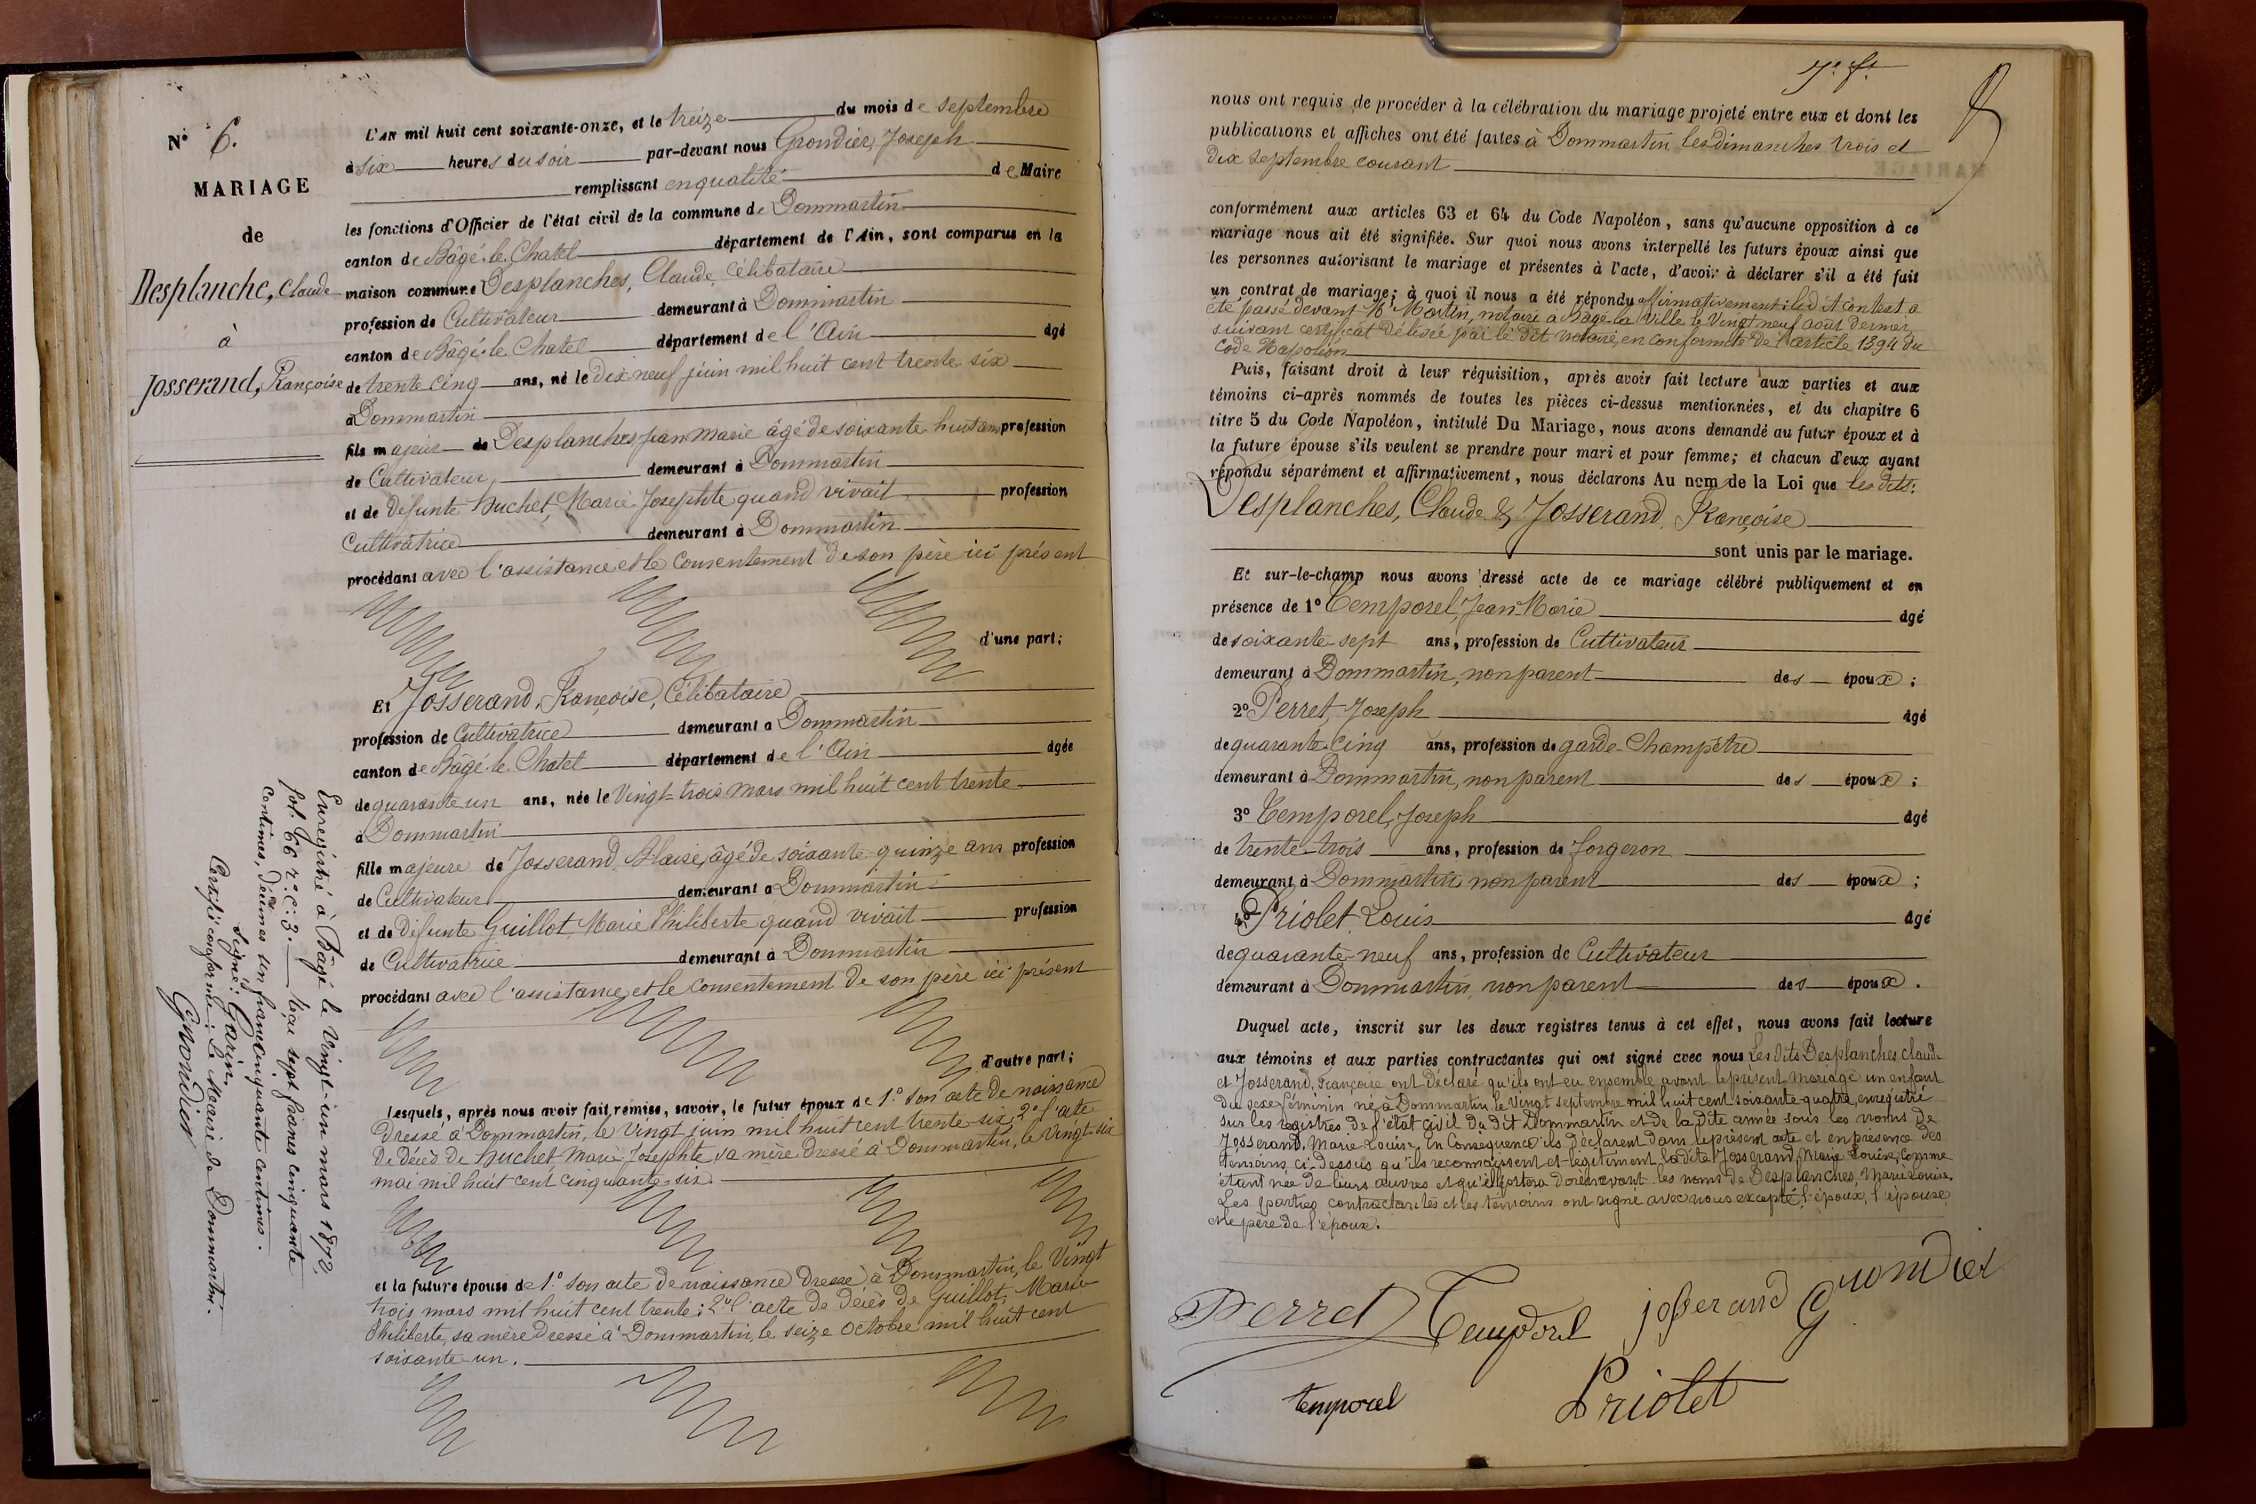 N° 6.
MARIAGE
de
Desplanche, Claude
à
Josserand, Françoise
L'AN mil huit cent soixante-onze, et le treize du mois de septembre
à six heures du soir par-devant nous Grondier, Joseph
remplissant en qualité de Maire
les fonctions d'Officier de l'état civil de la commune de Dommartin
canton de Bâgé-le-Chatel département de l'Ain, sont comparus en la
maison commune Desplanches, Claude, célibataire
profession de Cultivateur demeurant à Dommartin
canton de Bâgé-le-Chatel département de l'Ain âgé
de trente cinq ans, né le dix neuf juin mil huit cent trente six
à Dommartin
fils majeur de Desplanches Jean Marie âgé de soixante huit ans profession
de Cultivateur, demeurant à Dommartin
et de défunte Huchet, Marie Josephte quand vivait profession
Cultivatrice demeurant à Dommartin
procédant avec l'assistance et le consentement de son père ici présent
d'une part;
Et Josserand, Françoise, Célibataire
profession de Cultivatrice demeurant à Dommartin
canton de Bâgé-le-Chatel département de l'Ain âgée
de quarante un ans, née le vingt-trois mars mil huit cent trente
à Dommartin
fille majeure de Josserand, Blaise, âgé de soixante-quinze ans profession
de Cultivateur demeurant à Dommartin
et de défunte Guillot, Marie Philiberte quand vivait profession
de Cultivatrice demeurant à Dommartin
procédant avec l'assistance et le consentement de son père ici présent
d'autre part;
Lesquels, après nous avoir fait remise, savoir, le futur époux de 1.° son acte de naissance
dressé à Dommartin, le vingt juin mil huit cent trente-six; 2° l'acte
de décès de Huchet Marie Josephte sa mère dressé à Dommartin, le vingt-six
mai mil huit cent cinquante-six.
et la future épouse de 1.° son acte de naissance dressé à Dommartin, le vingt
trois mars mil huit cent trente; 2° l'acte de décès de Guillot, Marie
Philiberte, sa mère dressé à Dommartin, le seize octobre mil huit cent
soixante-un.
Enregistré à Bâgé le vingt-un mars 1872,
fol. 66 r.° c: 3. Reçu sept francs cinquante
centimes, décimes un franc cinquante centimes.
Signé: Garin.
Certifié conforme: Le Maire de Dommartin.
Grondier
7.e f.t
nous ont requis de procéder à la célébration du mariage projeté entre eux et dont les
publications et affiches ont été faites à Dommartin les dimanches trois et
dix septembre courant
conformément aux articles 63 et 64 du Code Napoléon, sans qu'aucune opposition à ce
mariage nous ait été signifiée. Sur quoi nous avons interpellé les futurs époux ainsi que
les personnes autorisant le mariage et présentes à l'acte, d'avoir à déclarer s'il a été fait
un contrat de mariage; à quoi il nous a été répondu affirmativement: led.it contrat a
été passé devant M.e Martin, notaire à Bâgé-la-Ville le vingt neuf août dernier,
suivant certificat délivré par le dit notaire, en conformité de l'article 1394 du
Code Napoléon
Puis, faisant droit à leur réquisition, après avoir fait lecture aux parties et aux
témoins ci-après nommés de toutes les pièces ci-dessus mentionnées, et du chapitre 6
titre 5 du Code Napoléon, intitulé Du Mariage, nous avons demandé au futur époux et à
la future épouse s'ils veulent se prendre pour mari et pour femme; et chacun d'eux ayant
répondu séparément et affirmativement, nous déclarons Au nom de la Loi que les dits:
Desplanches, Claude & Josserand, Françoise
sont unis par le mariage.
Et sur-le-champ nous avons dressé acte de ce mariage célébré publiquement et en
présence de 1° Temporel, Jean-Marie âgé
de soixante-sept ans, profession de Cultivateur
demeurant à Dommartin, non parent des époux;
2° Perret, Joseph âgé
de quarante-cinq ans, profession de garde-Champêtre
demeurant à Dommartin, non parent des époux;
3° Temporel, Joseph âgé
de trente-trois ans, profession de forgeron
demeurant à Dommartin, non parent des époux;
4° Priolet, Louis âgé
de quarante-neuf ans, profession de Cultivateur
demeurant à Dommartin, non parent des époux.
Duquel acte, inscrit sur les deux registres tenus à cet effet, nous avons fait lecture
aux témoins et aux parties contractantes qui ont signé avec nous Les dits Desplanches Claude
et Josserand, Françoise ont déclaré qu'ils ont eu ensemble avant le présent mariage un enfant
du sexe féminin né à Dommartin le vingt septembre mil huit cent soixante quatre, enregistré
sur les registres de l'état civil du dit Dommartin et de la dite année sous les noms de
Josserand, Marie Louise, en conséquence ils déclarent dans le présent acte et en présence des
témoins ci-dessus qu'ils reconnaissent et légitiment la dite Josserand, Marie Louise, comme
étant née de leurs œuvres et qu'elle portera dorénavant les noms de Desplanches, Marie Louise.
Les parties contractantes et les témoins ont signé avec nous excepté l'époux, l'épouse
et le père de l'époux.
Perret Temporel josserand Grondier
temporel Priolet